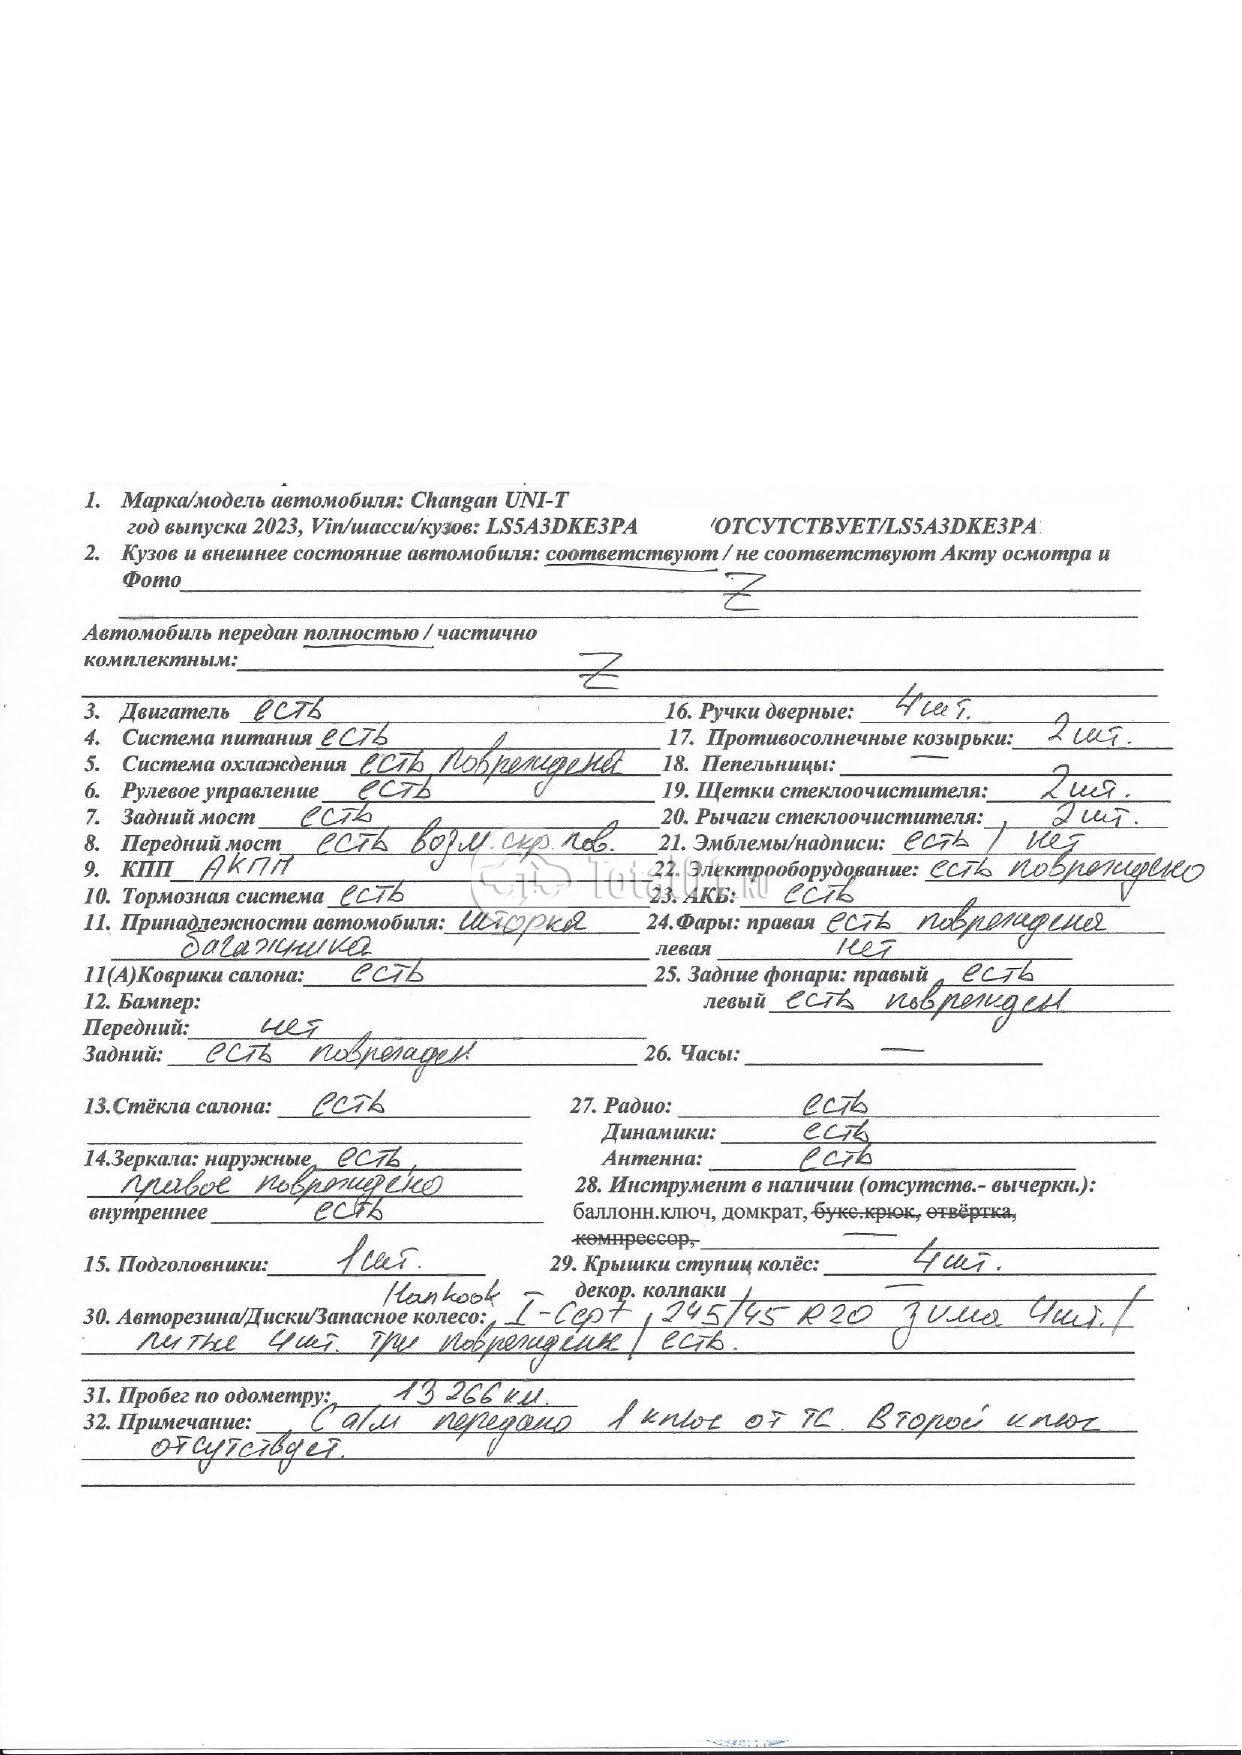 1. Марка/модель автомобиля: Changan UNI-T
год выпуска 2023, Vin/шасси/кузов: LS5A3DKE3PA /ОТСУТСТВУЕТ/LS5A3DKE3PA
2. Кузов и внешнее состояние автомобиля: соответствуют / не соответствуют Акту осмотра и
Фото Z
Автомобиль передан полностью / частично
комплектным: Z
3. Двигатель есть 16. Ручки дверные: 4 шт.
4. Система питания есть 17. Противосолнечные козырьки: 2 шт.
5. Система охлаждения есть, повреждена 18. Пепельницы: —
6. Рулевое управление есть 19. Щетки стеклоочистителя: 2 шт.
7. Задний мост есть 20. Рычаги стеклоочистителя: 2 шт.
8. Передний мост есть возм. скр. пов. 21. Эмблемы/надписи: есть / нет
9. КПП АКПП 22. Электрооборудование: есть повреждено
Total01.ru
10. Тормозная система есть 23. АКБ: есть
11. Принадлежности автомобиля: шторка 24.Фары: правая есть повреждена
багажника левая нет
11(А)Коврики салона: есть 25. Задние фонари: правый есть
12. Бампер: левый есть поврежден
Передний: нет
Задний: есть поврежден 26. Часы: —
13.Стёкла салона: есть 27. Радио: есть
Динамики: есть
14.Зеркала: наружные есть, Антенна: есть
правое повреждено 28. Инструмент в наличии (отсутств.- вычеркн.):
внутреннее есть баллонн.ключ, домкрат, букс.крюк, отвёртка,
компрессор,- —
15. Подголовники: 1 шт. 29. Крышки ступиц колёс: 4 шт.
Hankook – декор. колпаки —
30. Авторезина/Диски/Запасное колесо: I-Cept, 245/45 R20 зима 4шт./
литые 4шт. три повреждены / есть.
31. Пробег по одометру: 13 266 км.
32. Примечание: С а/м передано 1 ключ от ТС. Второй ключ
отсутствует.